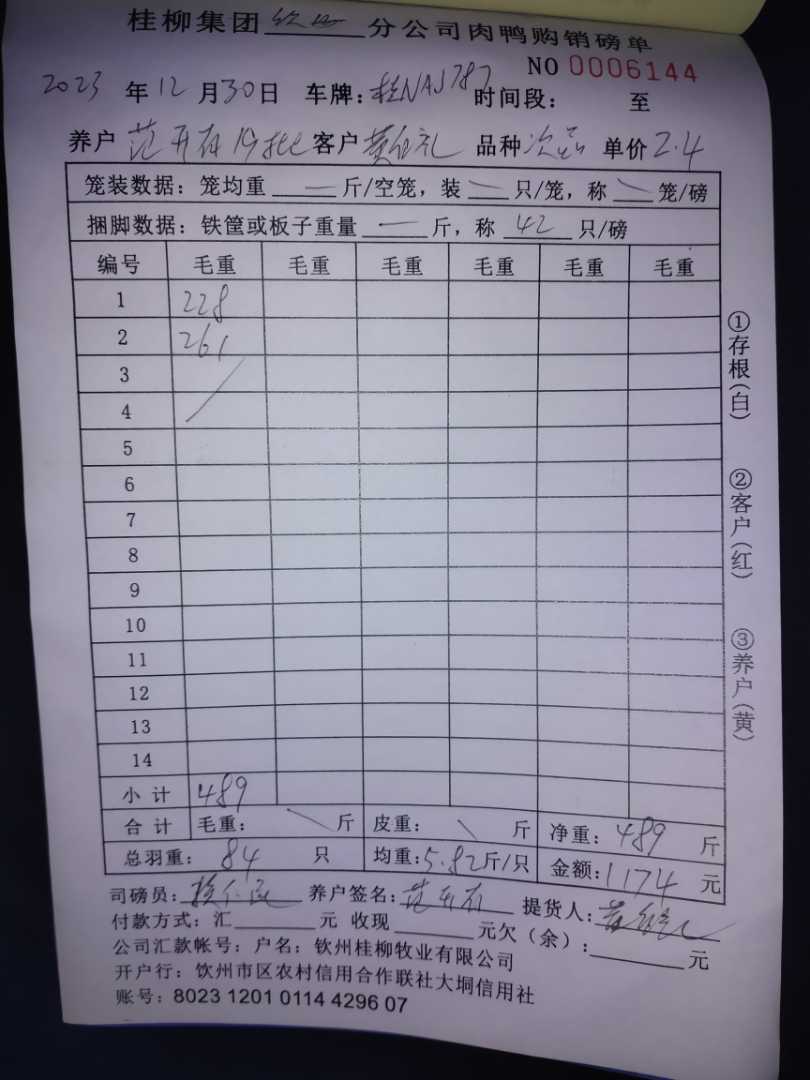 桂柳集团 分公司肉鸭购销磅单
NO 0006144
2023 年 12 月 30 日 车牌：桂NAJ787 时间段： 至
养户 范开存 客户 品种 次品 单价 2.4
笼装数据：笼均重 — 斤/空笼，装 — 只/笼，称 — 笼/磅
捆脚数据：铁筐或板子重量 — 斤，称 42 只/磅
编号 毛重 毛重 毛重 毛重 毛重 毛重
1 228
2 261
3
4
5
6
7
8
9
10
11
12
13
14
小计 489
合计 毛重： \ 斤 皮重： \ 斤 净重：489 斤
总羽重：84 只 均重：5.82斤/只 金额：1174 元
司磅员： 养户签名： 提货人：
付款方式：汇 元 收现 元欠（余）： 元
公司汇款帐号：户名：钦州桂柳牧业有限公司
开户行：饮州市区农村信用合作联社大垌信用社
账号：8023 1201 0114 4296 07
①存根(白)
②客户(红)
③养户(黄)